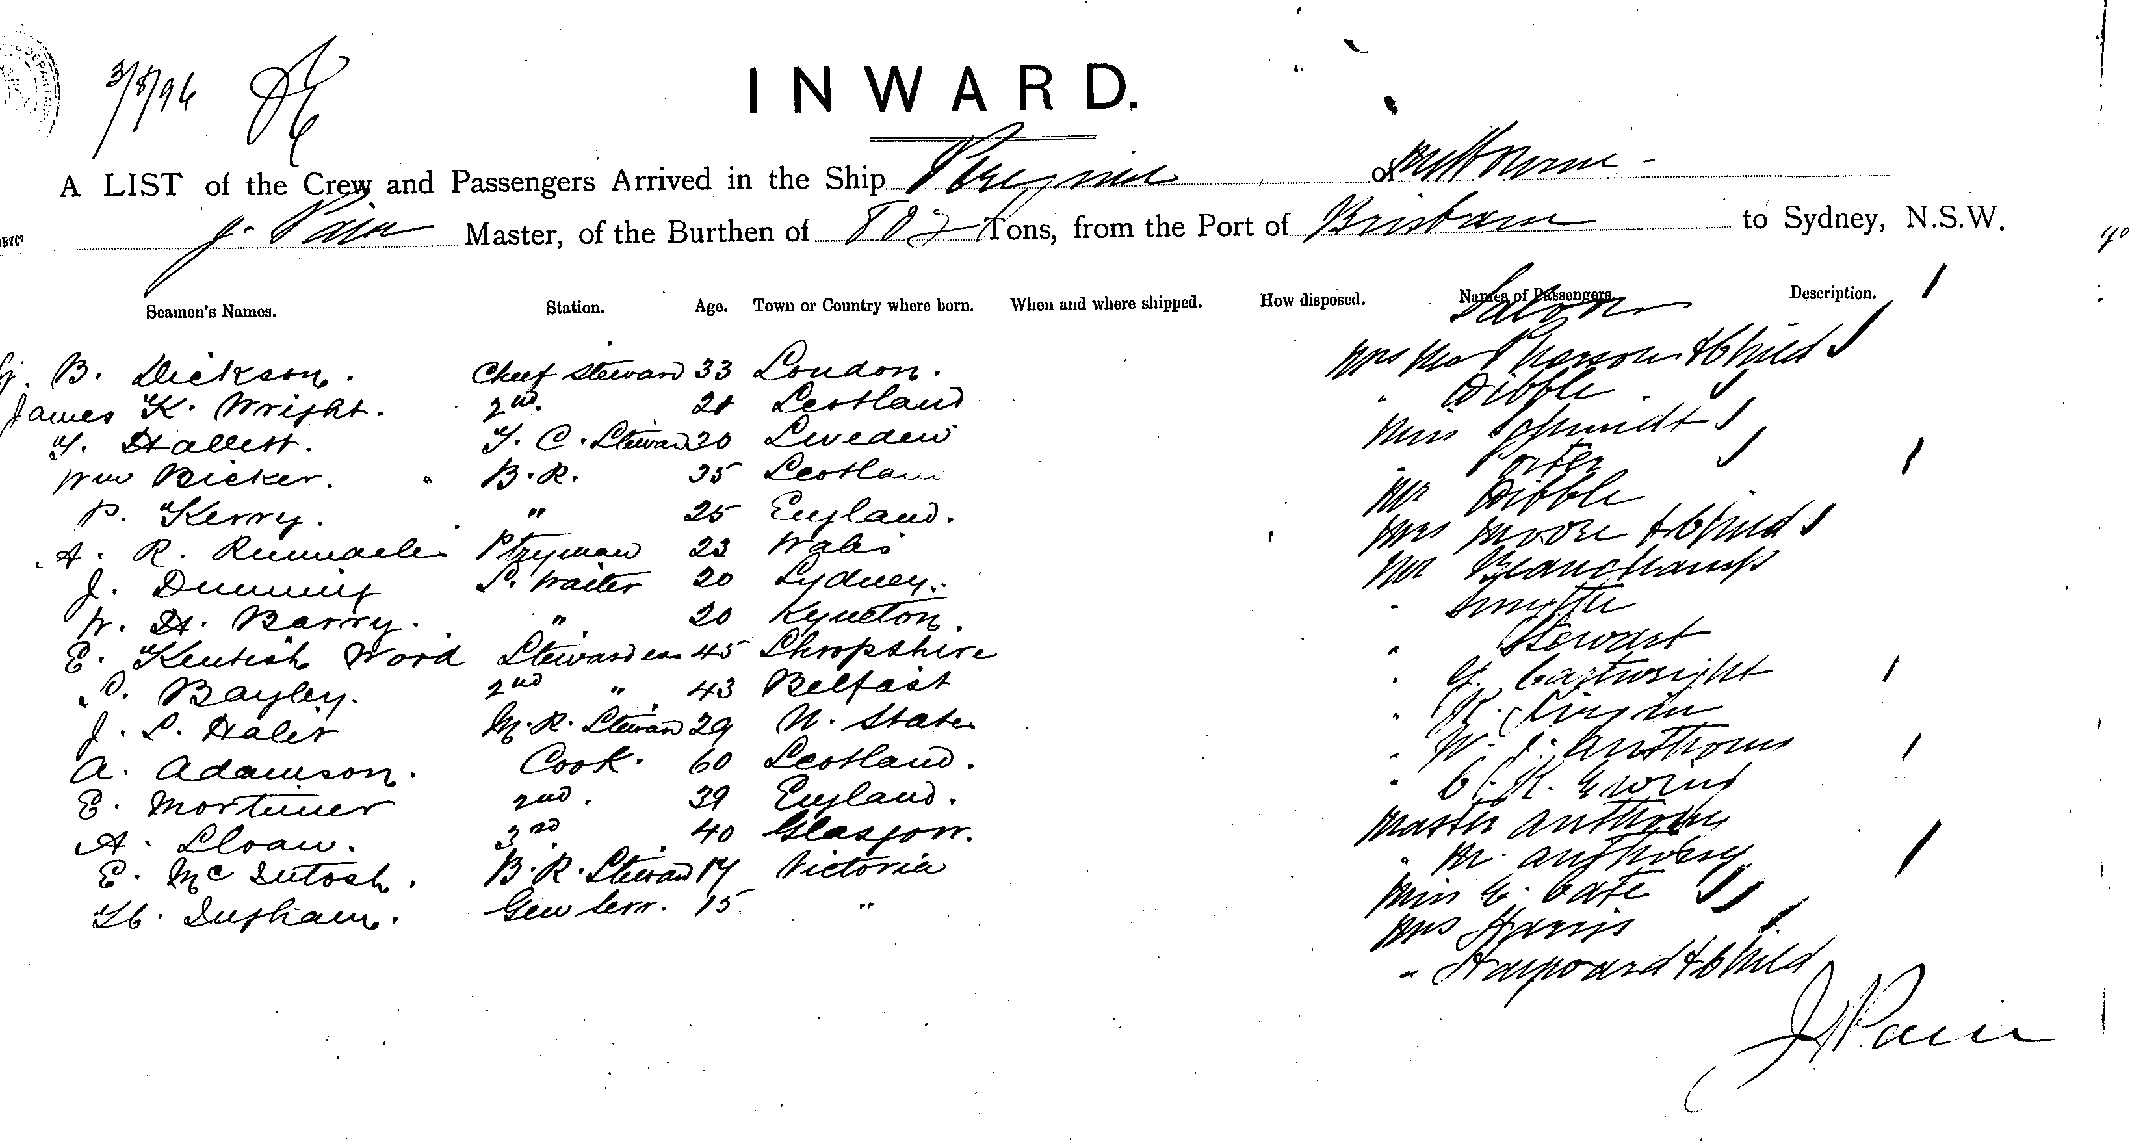 3/8/96
INWARD.
A LIST of the Crew and Passengers Arrived in the Ship Peregrine of Melbourne
J. Pain Master, of the Burthen of Tons, from the Port of Brisbane to Sydney, N.S.W.
Seamen's Names. Station. Age. Town or Country where born. When and where shipped. How disposed. Names of Passengers Description.
Saloon
B. Dickson. Chief Steward 33 London. Mrs MacPherson & Child
James K. Wright. 2nd. Scotland " Dibble
T. Hallett. T. C. Steward 20 Sweden Miss Schmidt
Wm Bicker. " B.R. 35 Scotland " Porter
P. Kerry. " 25 England. Mr Dibble
A. R. Pтryman Wales Mrs Moore & Child
J. Dunning S. Waiter 20 Sydney. Mr Beauchamp
W. H. Barry. " 20 Kyneton. " Smythe
E. Kentish Word Stewardess 45 Shropshire " Stewart
S. Bayley. 2nd " 43 Belfast " G. Cartwright
J. S. M.R. Steward 29 U. States
A. Adamson. Cook. 60 Scotland. " W. J. Anthony
E. Mortimer 2nd. 39 England. " C. K. Ewing
A. Sloan. 3rd 40 Glasgow. Master Anthony
E. McIntosh. B.R. Steward 17 Victoria " M. Anthony
Ingham. Gen Serv. 15 " Miss E. Cate
Mrs Harris
" Hayward & Child
J Pain